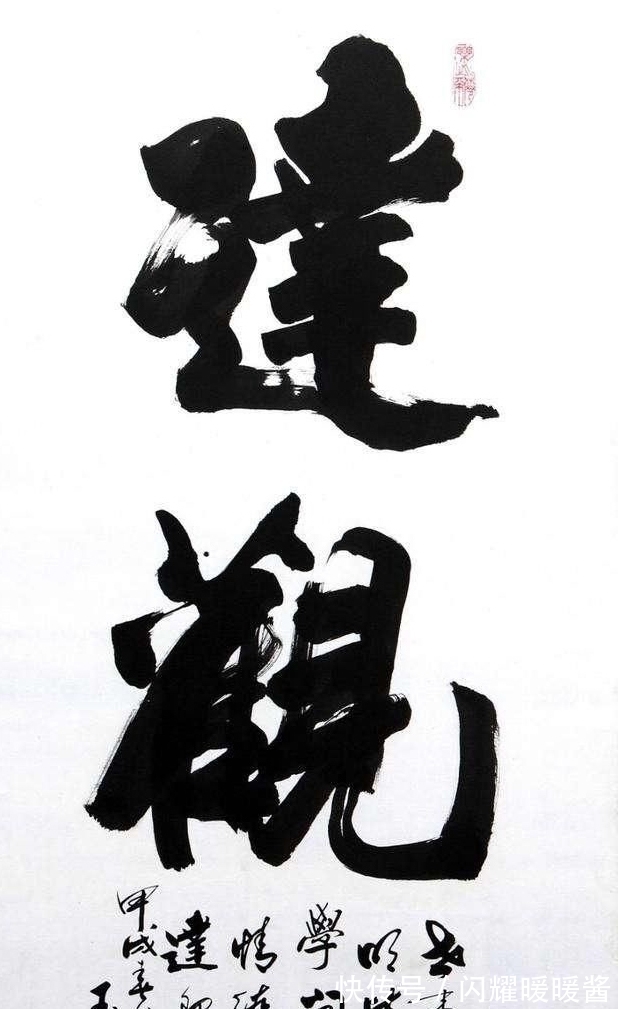 達
觀
世
明
學問
情
達
甲戌春
玉
快传号 / 闪耀暖暖酱